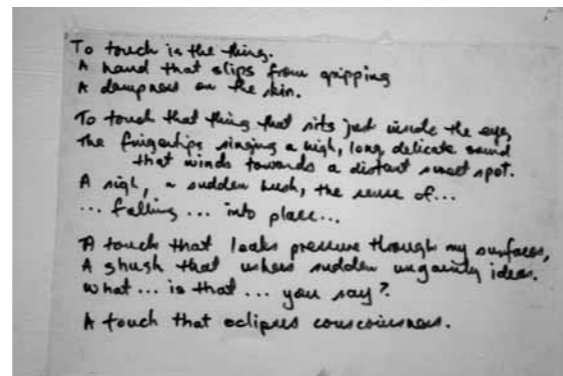 To touch is the thing.
A hand that slips from gripping
A dampness on the skin.
To touch that thing that sits just inside the eye,
The fingertips singing a high, long, delicate sound
that winds towards a distant sweet spot.
A sigh, a sudden hush, the sense of...
... falling ... into place...
A touch that leaks pressure through my surfaces,
A shush that ushers sudden ungainly ideas.
What ... is that ... you say?
A touch that eclipses conscoiusness.